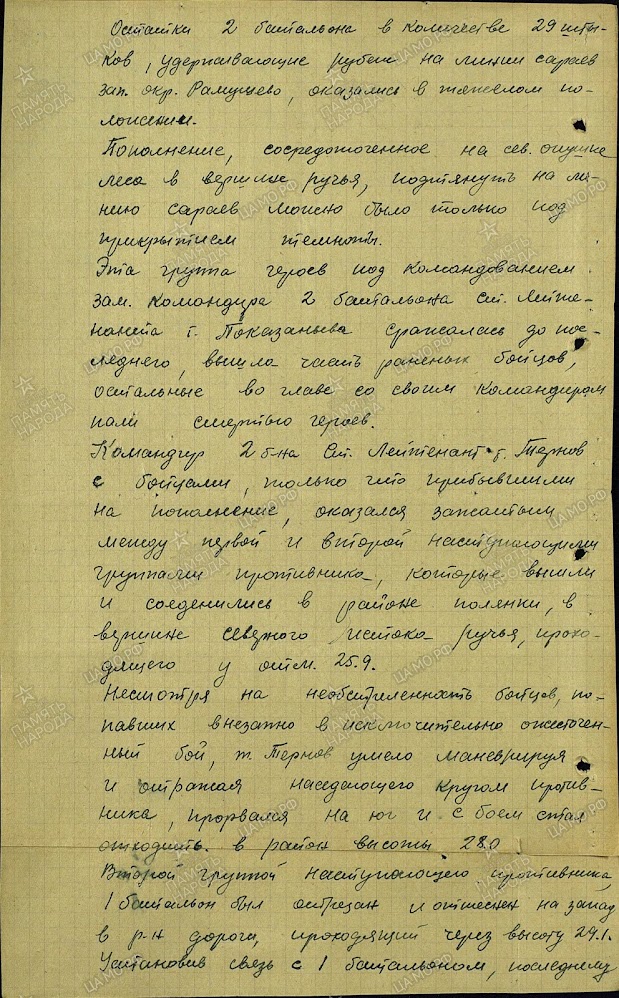 Остатки 2 батальона в количестве 29 шты-
ков, удерживающие рубеж на линии сараев
зап. окр. Рамушево, оказались в тяжелом по-
ложении.
Пополнение, сосредоточенное на сев. опушке
леса в вершине ручья, подтянуть на ли-
нию сараев можно было только под
прикрытием темноты.
Эта группа героев под командованием
зам. командира 2 батальона Ст. Лейте-
нанта т. Показаньева сражалась до пос-
леднего, вышла часть раненых бойцов,
остальные во главе со своим командиром
пали смертью героев.
Командир 2 б-на Ст. Лейтенант т. Тернов
с бойцами, только что прибывшими
на пополнение, оказался зажатым
между первой и второй наступающими
группами противника, которые вышли
и соеденились в районе полянки, в
вершине северного истока ручья, прохо-
дящего у отм. 25.9.
Несмотря на необстреленность бойцов, по-
павших внезапно в исключительно ожесточен-
ный бой, т. Тернов умело маневрируя
и отражая наседающего кругом против-
ника, прорвался на юг и с боем стал
отходить в район высоты 28.0
Второй группой наступающего противника,
1 батальон был отрезан и оттеснен на запад
в р-н дороги, проходящий через высоту 29.1.
Установив связь с 1 батальоном, последнему
ПАМЯТЬ НАРОДА
ЦАМО.РФ